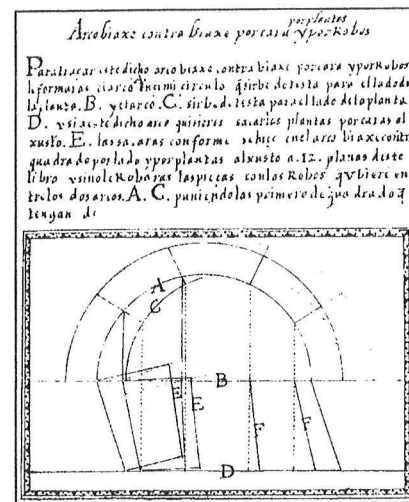 Arco biaxe contra biaxe por cara y por Robos
por plantas
Para traçar este dicho arco biaxe contra biaxe por cara y por Robos
formaras el arco A. semi circulo q̃ sirbe de testa para el lado de
la lanza. B. y el arco. C. sirbe de testa para el lado de la planta
D. y si a este dicho arco quisieres sacar las plantas por caras al
xusto. E. las sacaras conforme se hiçe en el arco biaxe contra
quadrado por lado y por plantas al xusto a. 12. planas deste
libro y si no le Robaras las pieças con los Robos q̃ ubiere en
tre los dos arcos. A. C. puniendolas primero de quadrado q̃
tengan de
A
C
B
E
E
F
F
D